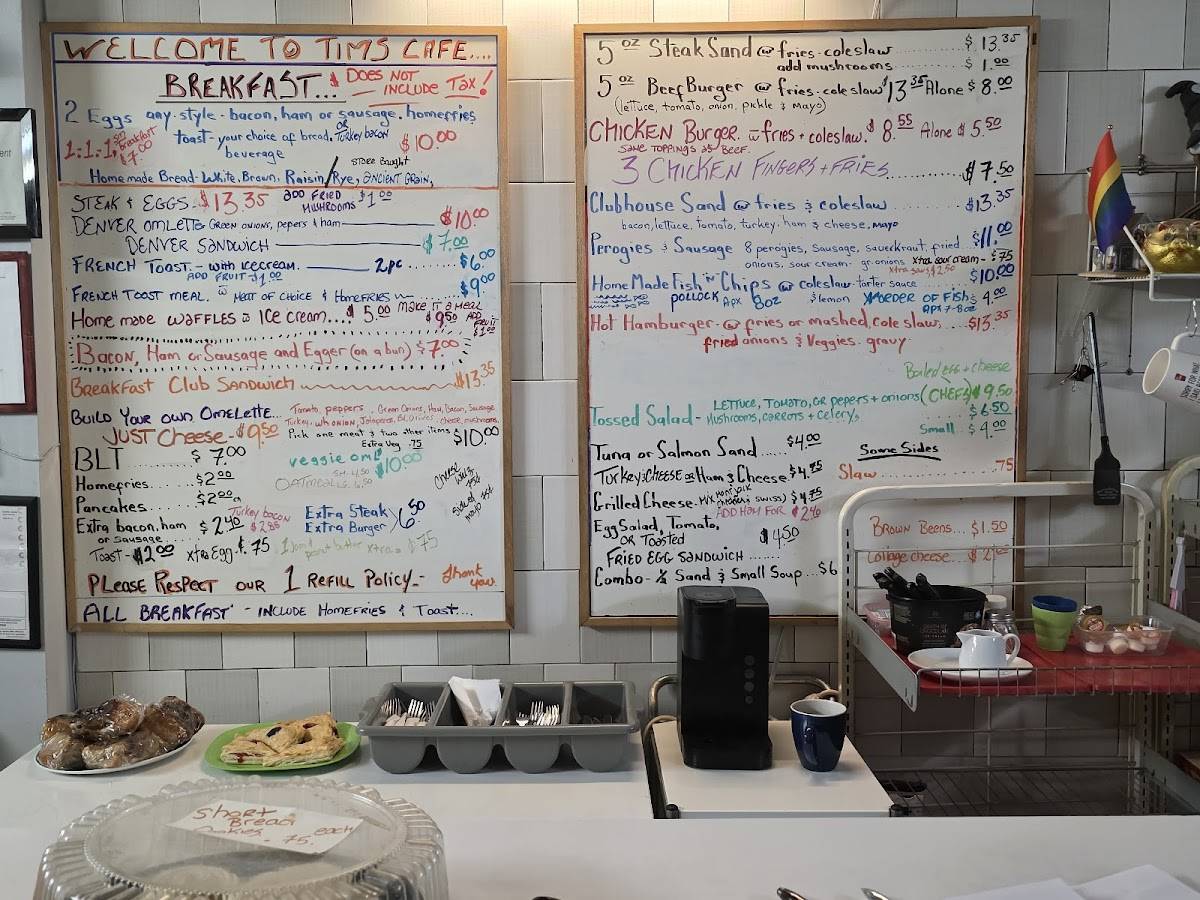 WELCOME TO TIMS CAFE....
BREAKFAST... $ DOES NOT INCLUDE TAX!
2 Eggs any-style - bacon, ham or sausage. homefries
toast - your choice of bread. or Turkey bacon $10.00
beverage
1:1:1, on breakfast $7.00
Store Bought
Homemade Bread-White, Brown, Raisin/Rye, ancient Grain,
STEAK & EGGS. $13.35 ADD FRIED MUSHROOMS $1.00
DENVER OMLETTE GREEN ONIONS, pepers & ham $10.00
DENVER SANDWICH $7.00
FRENCH TOAST. - with icecream. 2pc ....... $6.00
ADD FRUIT $1.00
FRENCH TOAST MEAL. w MEAT OF CHOICE & HOMEFRIES $9.00
Home made waffles ICE cream.... $5.00 MAKE IT A MEAL $9.50 ADD FRUIT $1.00
Bacon, Ham or Sausage and Egger (on a bun) $7.00
BREAKFAST CLUB SANDWICH $13.35
BUILD YOUR OWN OMELETTE... Tomato, peppers, Green Onions, Ham, Bacon, Sausage
Turkey, wh onion, Jalapenos, BL.Olives, cheese, mushrooms.
JUST Cheese - $9.50 Pick one meat & two other items $10.00
Extra Veg .75
BLT ............ $7.00
veggie oml $10.00
Homefries...... $2.00
OATMEAL
Pancakes....... $2.00
Extra bacon, ham or Sausage $2.40
Turkey bacon $2.85
Extra Steak
Extra Burger 6.50
Toast - $2.00 xtra Egg - $.75
peanut butter xtra = $.75
PLEASE RESPECT OUR 1 REFILL POLICY.- Thank you
ALL BREAKFAST - INCLUDE HOMEFRIES & TOAST....
5 oz Steak Sand @ fries - coleslaw $13.35
add mushrooms $1.00
5 oz Beef Burger @ fries - coleslaw $13.35 Alone $8.00
(lettuce, tomato, onion, pickle & mayo)
CHICKEN Burger. w fries + coleslaw. $8.55 Alone $5.50
SAME TOPPINGS AS BEEF.
3 CHICKEN FINGERS + FRIES $7.50
Clubhouse Sand @ fries & coleslaw $13.35
bacon, lettuce, tomato, turkey, ham & cheese, mayo
Perogies & Sausage 8 perogies, sausage, sauerkraut, fried $11.00
onions, sour cream. gr.onions xtra sour cream - $.75
xtra saus $2.50
Home Made Fish 'n' Chips @ coleslaw - tarter sauce $10.00
POLLOCK Apx 8oz & lemon XORDER OF FISH $4.00
APX 7-8oz
Hot Hamburger - @ fries or mashed, cole slaw, $13.35
fried onions & Veggies. gravy
Boiled egg + cheese
Tossed Salad - LETTUCE, TOMATO, GR pepers + onions (CHEFS) $9.50
Mushrooms, carrots + celery, $6.50
Small $4.00
Tuna or Salmon Sand ...... $4.00
Some Sides
Turkey & Cheese or Ham & Cheese. $4.75
Slaw .............. .75
Grilled Cheese - swiss) $4.75
ADD HAM FOR $2.40
Egg Salad, Tomato, OR Toasted $4.50
Brown Beens... $1.50
FRIED EGG SANDWICH ......
Cottage cheese...
Combo - ½ Sand & Small Soup... $6
Short Bread
Cookies - .75. each